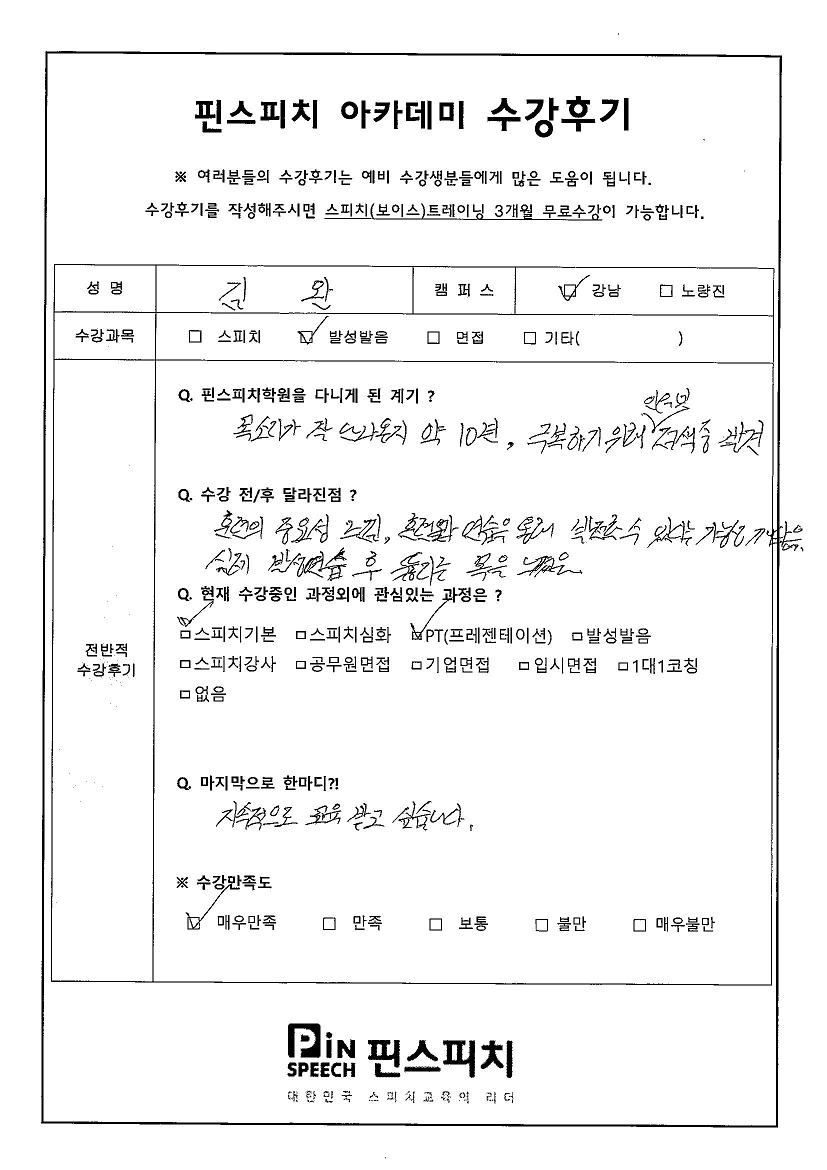 핀스피치 아카데미 수강후기
※ 여러분들의 수강후기는 예비 수강생분들에게 많은 도움이 됩니다.
수강후기를 작성해주시면 스피치(보이스)트레이닝 3개월 무료수강이 가능합니다.
성 명 김 완 캠 퍼 스 ☑ 강남 □ 노량진
수강과목 □ 스피치 ☑ 발성발음 □ 면접 □ 기타( )
전반적
수강후기
Q. 핀스피치학원을 다니게 된 계기 ?
목소리가 잘 안나온지 약 10년, 극복하기 위해 인터넷 검색중 발견
Q. 수강 전/후 달라진점 ?
훈련의 중요성 느낌, 훈련과 연습을 통해 실천할 수 있는 가능성 깨달음.
실제 발성연습 후 뚫리는 목을 느꼈음.
Q. 현재 수강중인 과정외에 관심있는 과정은 ?
☑스피치기본 □스피치심화 ☑PT(프레젠테이션) □발성발음
□스피치강사 □공무원면접 □기업면접 □입시면접 □1대1코칭
□없음
Q. 마지막으로 한마디?!
지속적으로 교육 받고 싶습니다.
※ 수강만족도
☑ 매우만족 □ 만족 □ 보통 □ 불만 □ 매우불만
PiN
SPEECH 핀스피치
대한민국 스피치교육의 리더